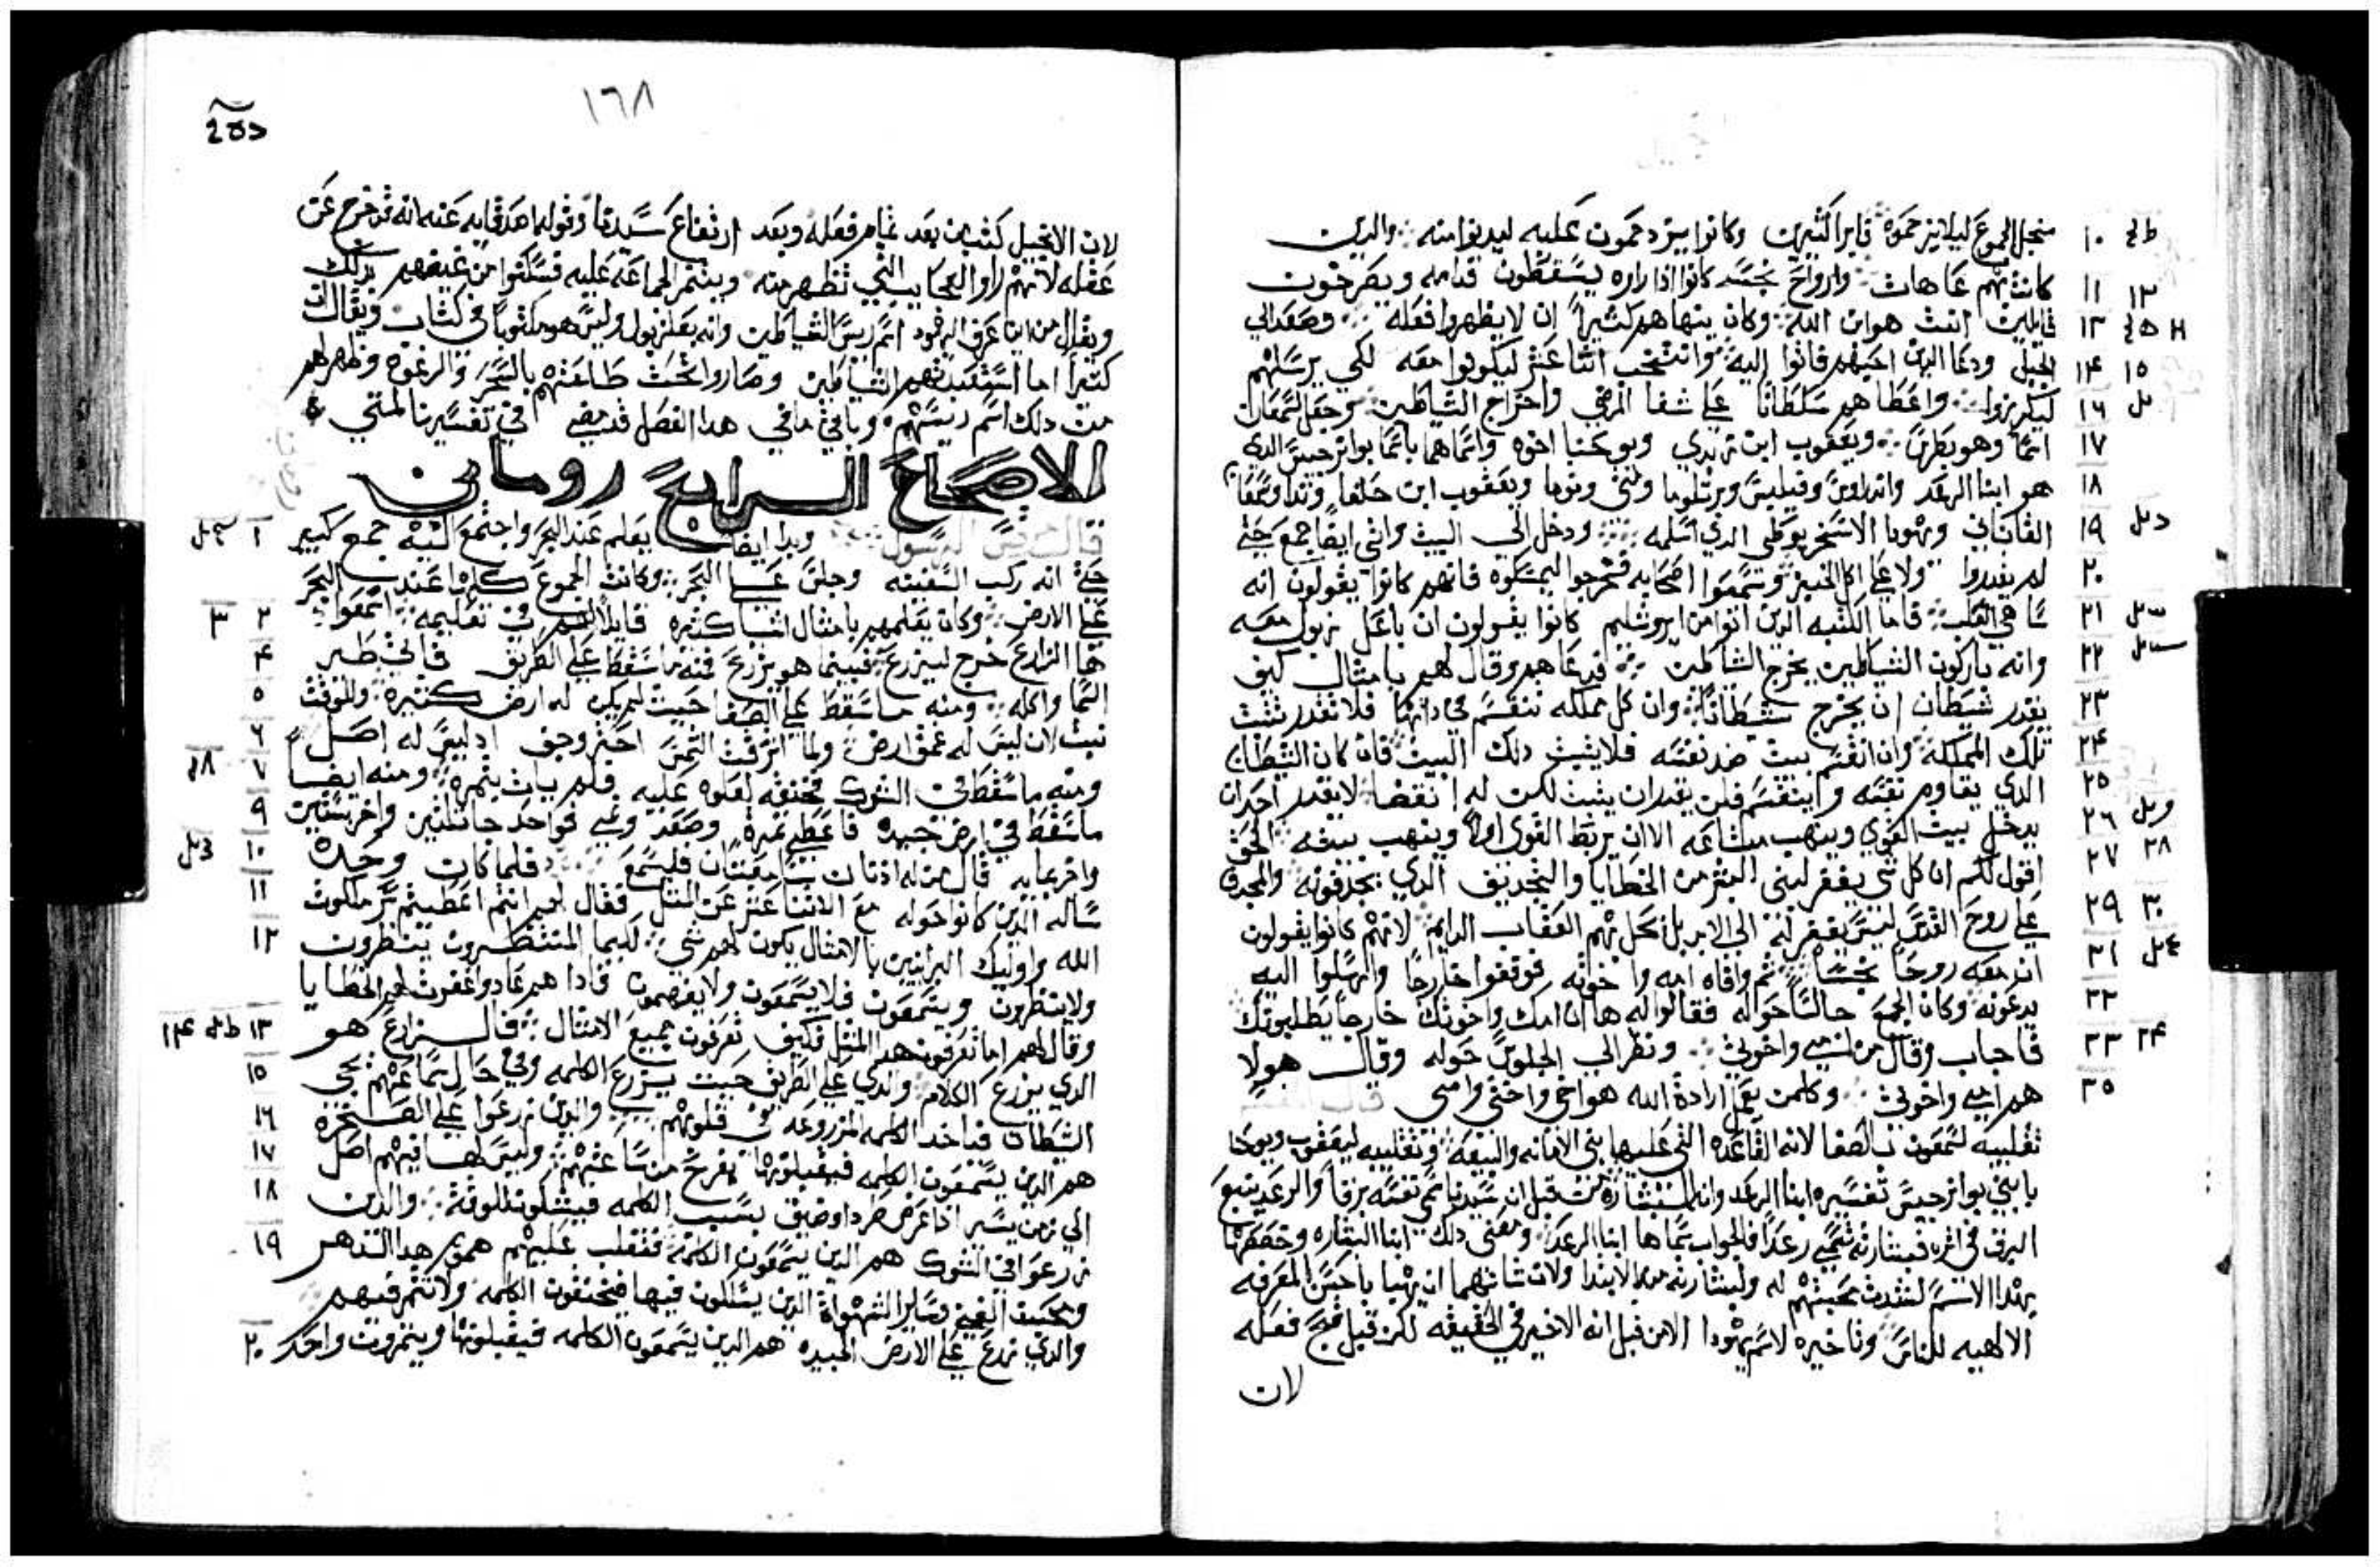 من اجل الجموع ليلا يزحموه فابرا كثيرين وكانوا يزدحمون عليه ليدنوا منه والدين
كانت بهم عاهات وارواح نجسه كانوا اذا راوه يسقطون قدامه ويصرخون
قايلين انت هو ابن الله وكان ينهاهم كثيرا ان لا يظهروا فعله وصعد الي
الجبل ودعا الدين احبهم فاتوا اليه وانتخب اتنا عشر ليكونوا معه لكي يرسلهم
ليكرزوا واعطاهم سلطانا علي شفا المرضي واخراج الشياطين وجعل لسمعان
اسما وهو بطرس ويعقوب ابن زبدي ويوحنا اخوه واسماهما باسما بوانرجيس الدي
هو ابنا الرعد واندراوس وفيلبس وبرتلوما ومتي وتوما ويعقوب ابن حلفا وتدا وسمعان
القاناني ويهودا الاسخريوطي الدي اسلمه ودخل الي البيت واتي ايضا جمع حتي
لم يقدروا ولا علي اكل الخبز وسمعوا اصحابه فخرجوا ليمسكوه فانهم كانوا يقولون انه
ساهي القلب فاما الكتبه الدين اتوا من ايروشليم كانوا يقولون ان باعل زبول معه
وانه باركون الشياطين يخرج الشياطين فدعاهم وقال لهم بامثال كيف
يقدر شيطان ان يخرج شيطانا وان كل مملكه تنقسم في داتها فلا تقدر تثبت
تلك المملكة وان انقسم بيت ضد نفسه فلا يثبت دلك البيت فان كان الشيطان
الدي يقاوم نفسه وابنقسم فلن يقدر ان يثبت لكن له انقضا لا يقدر احد ان
يدخل بيت القوي وينهب متاعه الا ان يربط القوي اولا وينهب بيته الحق
اقول لكم ان كل شي يغفر لبني البشر من الخطايا والتجديف الدي يجدفونه والمجدف
علي روح القدس ليس يغفر له الي الابد بل تحل بهم العقاب الدايم لانهم كانوا يقولون
ان معه روحا نجسا ثم وافاه امه واخوته فوقفوا خارجا وارسلوا اليه
يدعونه وكان الجمع جالسا حوله فقالوا له ها ان امك واخوتك خارجا يطلبونك
فاجاب وقال من امي واخوتي ونظر الي الجلوس حوله وقال هولا
هم امي واخوتي وكلمن يعمل ارادة الله هو اخي واختي وامي قال المفسر
تقلييه لسمعون بالصفا لانه القاعده التي عليها بني الامانه والبيعه وتقلييه ليعقوب ويوحنا
بابني بوانرجيس تفسيره ابنا الرعد
البرق في اتره فبشارته تسمي رعدا فالجواب سماها ابنا الرعد ومعني دلك ابنا البشاره وخصصهما
بهدا الاسم لشدت محبتهم له ولبشارته من الابتدا ولان شانهما ان يهتما باحسن المعرفه
الالهيه للناس وتاخيره لاسم يهودا الا من قبل انه الاخير في الحقيقه لكن قبل قبح فعله
لان
١٠
١١
١٢
١٣
١٤
١٥
١٦
١٧
١٨
١٩
٢٠
٢١
٢٢
٢٣
٢٤
٢٥
٢٦
٢٧
٢٨
٢٩
٣٠
٣١
٣٢
٣٣
٣٤
٣٥
١٦٨
لان الانجيل كتب من بعد تمام فعله وبعد ارتفاع سيدنا وقوله اهد قابه عنه انه قد خرج عن
عقله لانهم راوا العجايب التي تظهر منه
ويقال من اين عرف اليهود اسم ريس الشياطين وانه بعلزبول وليس هو مكتوبا في كتاب ويقال ان
كتيرا ما استعبدتهم الشياطين وصاروا تحت طاعتهم بالسحر
من دلك اسم ريسهم وباقي ما في هدا الفصل قد مضي في تفسيرنا لمتي
الاصحاح الرابع روماني
قال مرقس الرسول وبدا ايضا يعلم عند البحر واجتمع اليه جمع كبير
حتي انه ركب السفينه وجلس علي البحر وكانت الجموع كلها عند البحر
علي الارض وكان يعلمهم بامثال اشيا كثيره قايلا لهم في تعليمه اسمعوا
ها الزارع خرج ليزرع فبينما هو يزرع فمنه ما سقط علي الطريق فاتي طير
السما واكله ومنه ما سقط علي الصفا حيث لم يكن له ارض كثيره وللوقت
نبت لان ليس له عمق ارض ولما اشرقت الشمس احترق وجف اد ليس له اصل
ومنه ما سقط في الشوك فخنقه لعلوه عليه فلم يات بثمره ومنه ايضا
ما سقط في ارض جيده فاعطي ثمره وصعد ونمي فواحد جا ثلثين واخر بستين
واخر بمايه قال من له ادنان سامعتان فليسمع فلما كان وحده
ساله الدين كانوا حوله مع الاثنا عشر عن المثل فقال لهم انتم اعطيتم سر ملكوت
الله واوليك البرانيين بالامثال يكون لهم شي لكيما المنتظرون ينظرون
ولا ينظرون ويسمعون فلا يسمعون ولا يفهمون فادا هم عادوا غفرت لهم الخطايا
وقال لهم اما تعرفون هدا المثل فكيف تعرفون جميع الامثال فالزارع هو
الدي يزرع الكلام والدي علي الطريق حيث يزرع الكلمه وفي حال سماعهم يجي
الشيطان فياخد الكلمه المزروعه في قلوبهم والدين زرعوا علي الصخره
هم الدين يسمعون الكلمه فيقبلونها بفرح من ساعتهم وليس لها فيهم اصل
الي زمن يسير ادا عرض طردا وضيق بسبب الكلمه فيشكون للوقت والدين
زرعوا في الشوك هم الدين يسمعون الكلمة فتغلب عليهم هموم هدا الدهر
ومحبت الغني وساير الشهوات الدين يسللون فيها فيخنقون الكلمه ولا تثمر فيهم
والدي زرع علي الارض الجيده هم الدين يسمعون الكلمه فيقبلونها ويثمرون واحد
١
٢
٣
٤
٥
٦
٧
٨
٩
١٠
١١
١٢
١٣
١٤
١٥
١٦
١٧
١٨
١٩
٢٠